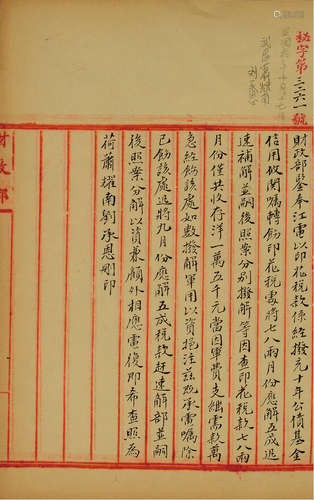 秘字第三三六一號
財政部鑒奉江電以印花稅款係經撥充十年公債基金
信用攸関囑轉飭印花稅處將七八兩月份應解五成迅
速補解並嗣後照案分別撥解等因查印花稅款七八兩
月份僅共收存洋一萬五千元當因軍費支絀需款萬
急經飭該處如數撥解軍用以資挹注茲既承電囑除
已飭該處迅將九月份應解五成稅款赶速解部並嗣
後照案分解以資兼顧外相應電復即希查照為
荷蕭耀南劉承恩刪印
財政部